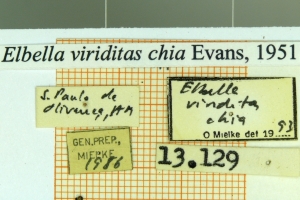 Elbella viriditas chia Evans, 1951
S. Paulo de
Olivença, AM
Elbella
viridita
chia
O Mielke det 19 93
GEN. PREP.,
MIELKE
1986
13.129